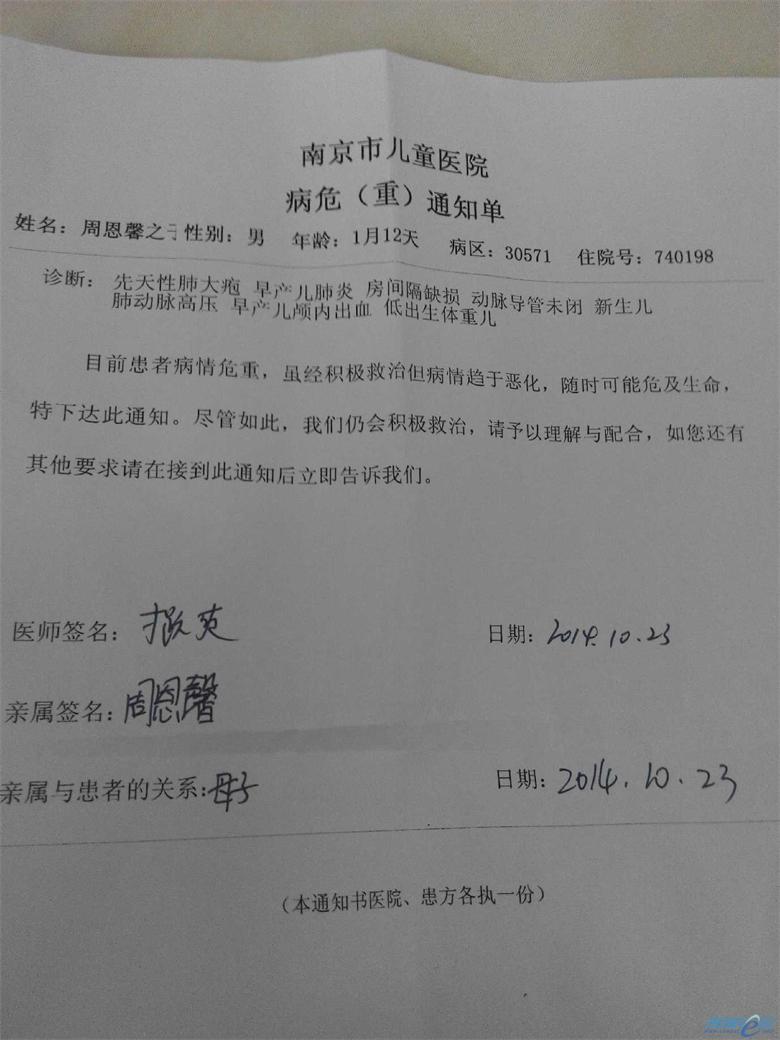 南京市儿童医院
病危（重）通知单
姓名：周恩馨之子 性别：男 年龄：1月12天 病区：30571 住院号：740198
诊断： 先天性肺大疱 早产儿肺炎 房间隔缺损 动脉导管未闭 新生儿
肺动脉高压 早产儿颅内出血 低出生体重儿
目前患者病情危重，虽经积极救治但病情趋于恶化，随时可能危及生命，
特下达此通知。尽管如此，我们仍会积极救治，请予以理解与配合，如您还有
其他要求请在接到此通知后立即告诉我们。
医师签名： 日期：2014.10.23
亲属签名：周恩馨
亲属与患者的关系：母子 日期：2014.10.23
（本通知书医院、患方各执一份）